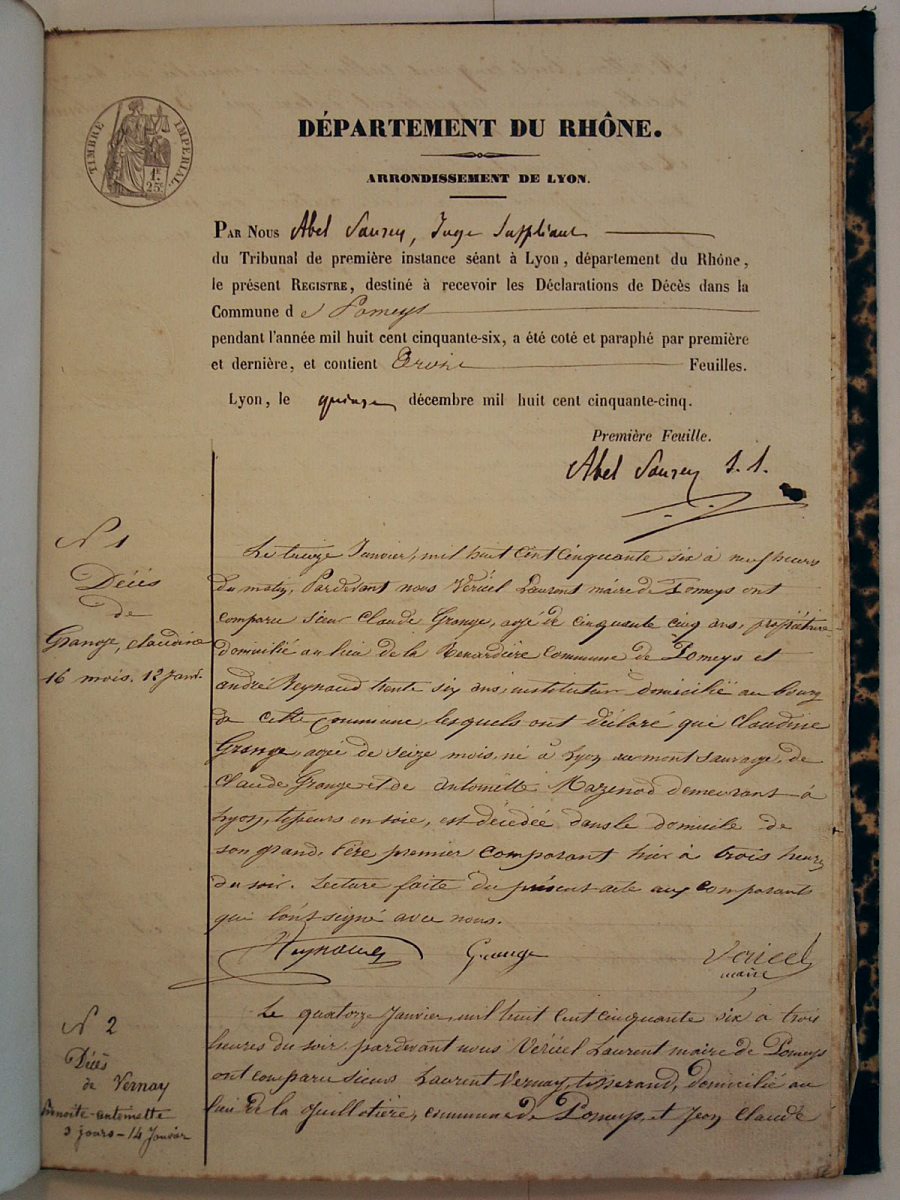 TIMBRE IMPERIAL.
1F.
25C
DÉPARTEMENT DU RHÔNE.
ARRONDISSEMENT DE LYON.
PAR NOUS Abel Juge Suppléant
du Tribunal de première instance séant à Lyon, département du Rhône,
le présent REGISTRE, destiné à recevoir les Déclarations de Décès dans la
Commune d e Pomeys
pendant l'année mil huit cent cinquante-six, a été coté et paraphé par première
et dernière, et contient Feuilles.
Lyon, le quinze décembre mil huit cent cinquante-cinq.
Première Feuille.
Abel
N 1
Décès
de
Grange, claudine
16 mois. 12 Janv.
Le treize Janvier, mil huit cent cinquante six à neuf heures
du matin, Pardevant nous Vericel Laurent maire de Pomeys ont
comparu sieur Claude Grange, agé de cinquante cinq ans, propriétaire
domicilié au lieu de la Renardière commune de Pomeys et
andré Reynaud trente six ans, instituteur domicilié au bourg
de cette Commune, lesquels ont déclaré que claudine
Grange, agée de seize mois, né à Lyon au mont sauvage, de
claude Grange et de antoinette Mazenod demeurant à
Lyon, tisseurs en soie, est décédée dans le domicile de
son grand, Père premier comparant hier à trois heures
du soir. Lecture faite du présent acte aux comparants
qui l'ont signé avec nous.
Reynaud Grange Vericel
maire
N 2
Décès
de Vernay
Benoite-antoinette
3 jours - 14 Janvier
Le quatorze Janvier, mil huit cent cinquante six à trois
heures du soir pardevant nous Vericel Laurent maire de Pomeys
ont comparu sieurs Laurent Vernay, tisserand, domicilié au
lieu de la Guillotière, commune de Pomeys, et Jean Claude